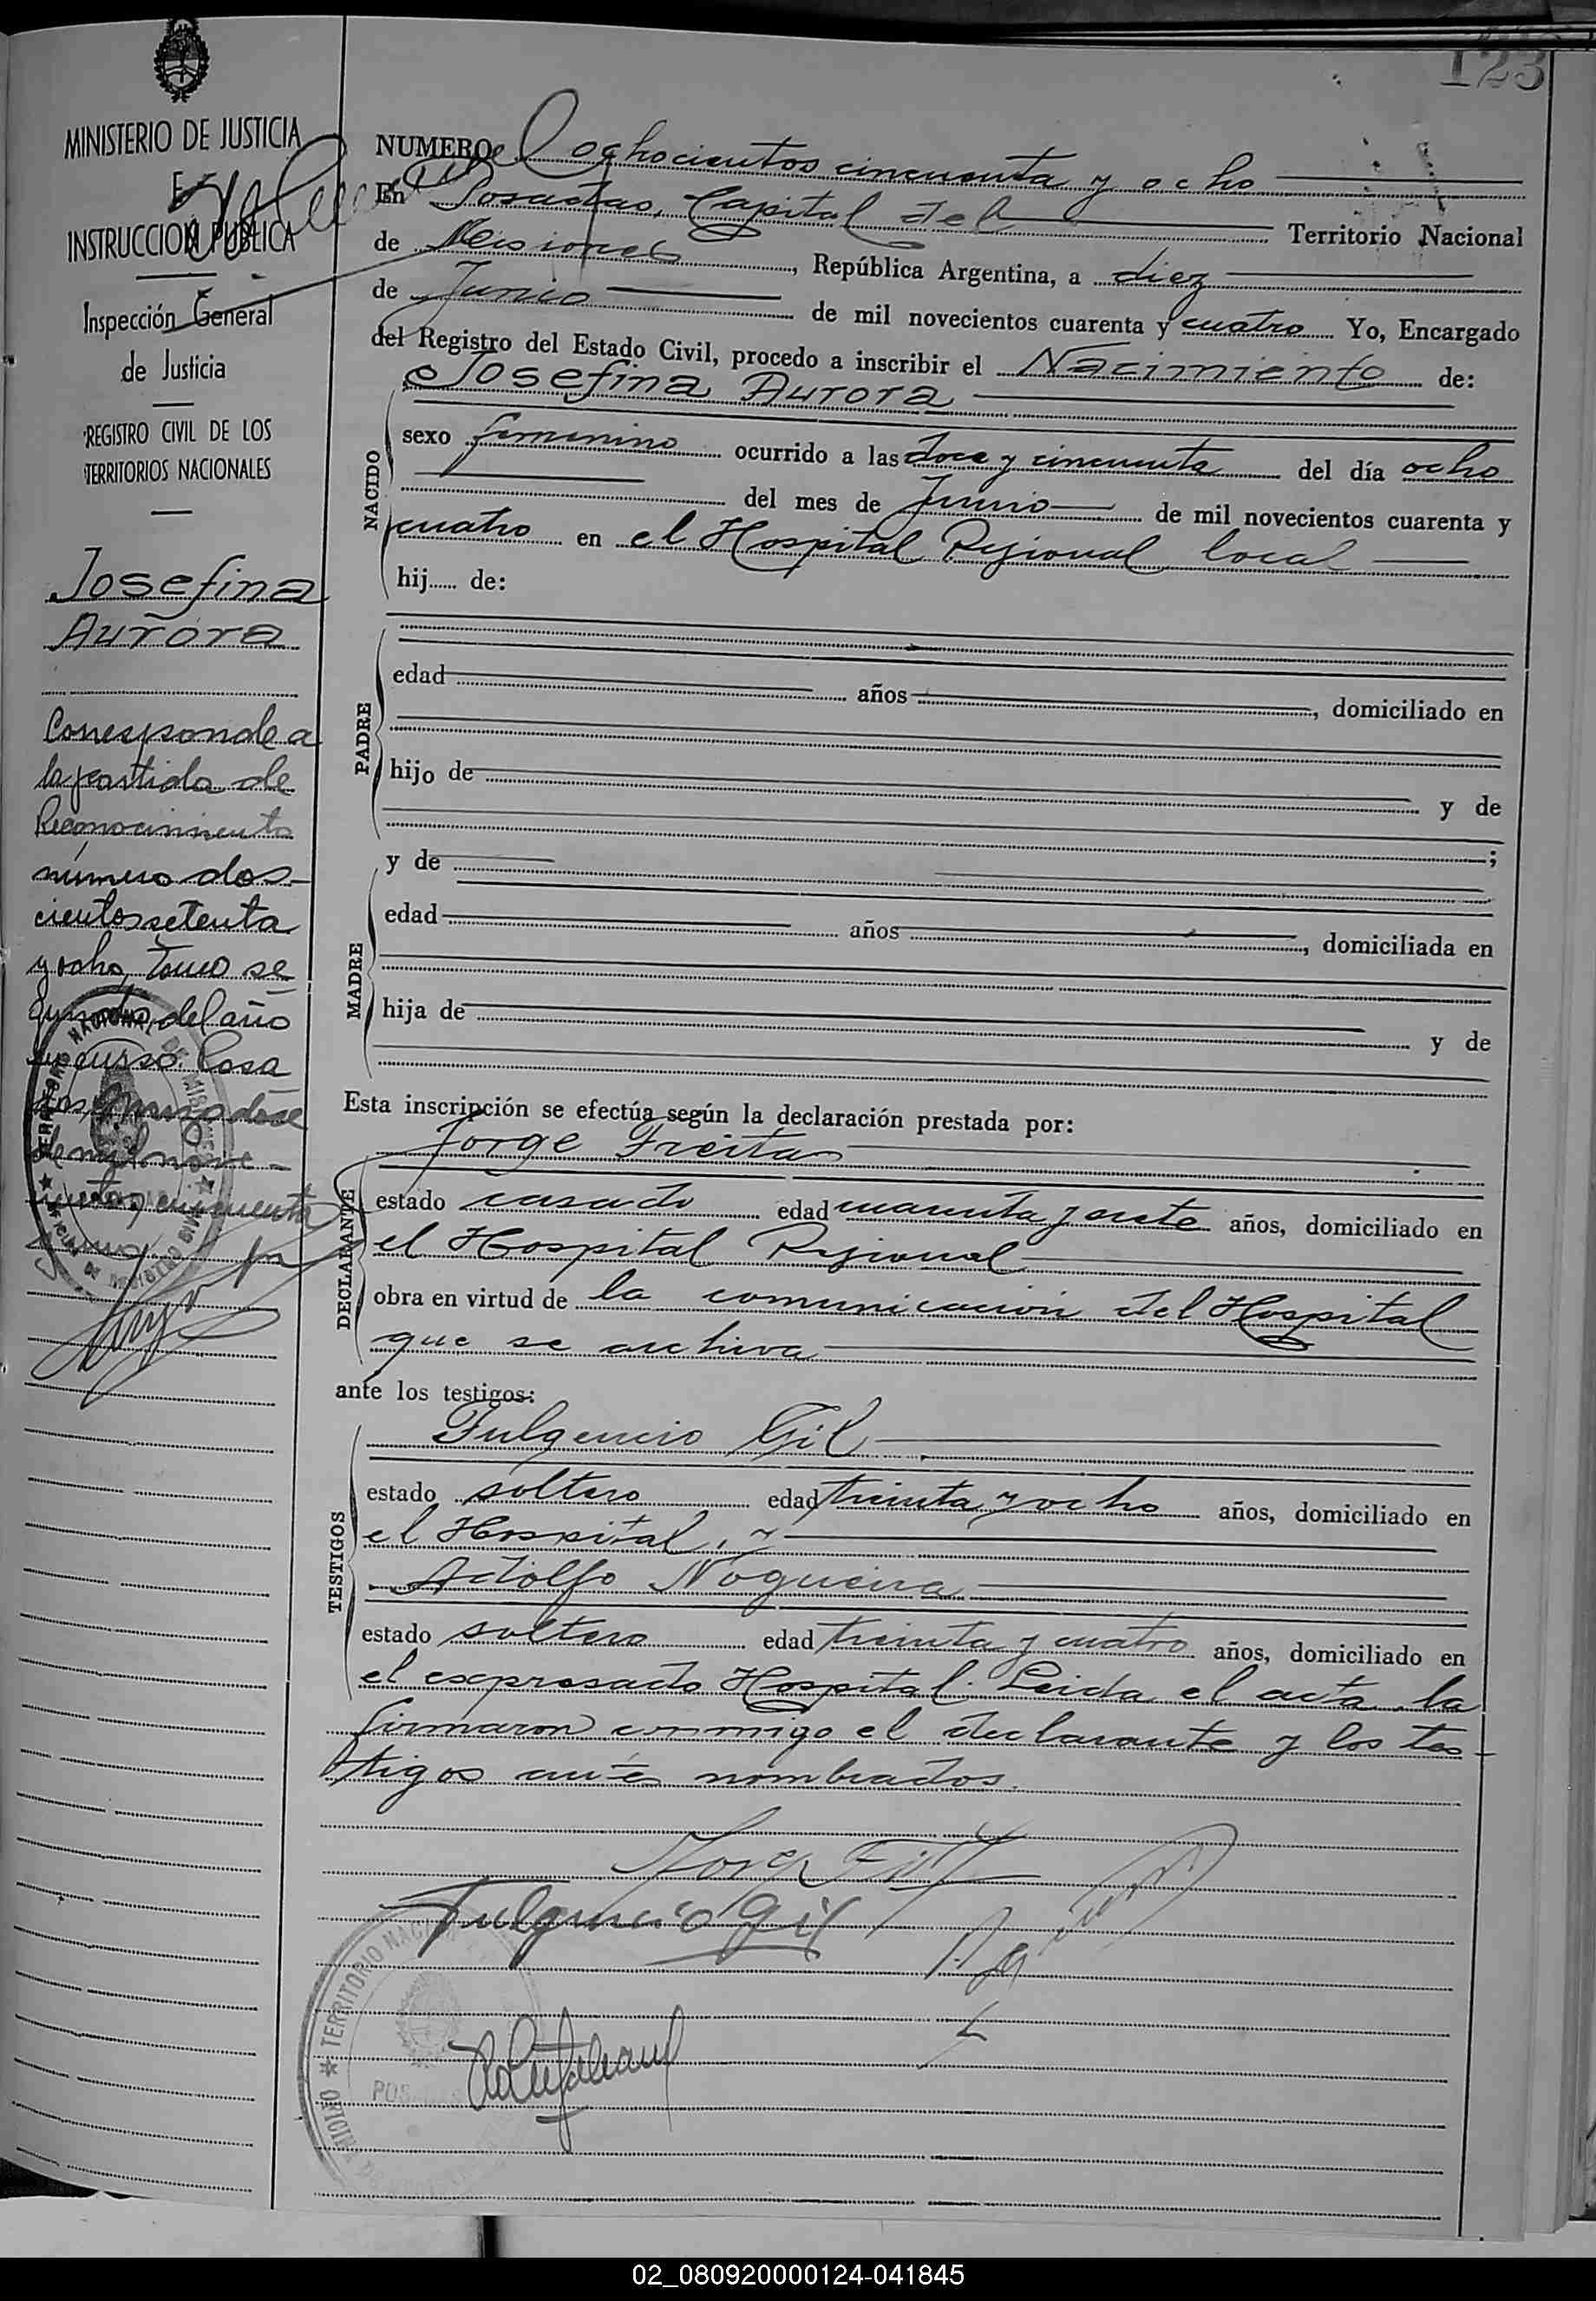 123
MINISTERIO DE JUSTICIA
E
INSTRUCCION PUBLICA
Inspección General
de Justicia
REGISTRO CIVIL DE LOS
TERRITORIOS NACIONALES
Josefina
Aurora
Corresponde a
la partida de
Reconocimiento
número dos-
cientos setenta
y ocho, tomo se
gundo, del año
en curso. Posa
das, Marzo doce
de mil nove-
cientos cincuenta
NUMERO ochocientos cincuenta y ocho
En Posadas, Capital del Territorio Nacional
de Misiones, República Argentina, a diez
de Junio de mil novecientos cuarenta y cuatro Yo, Encargado
del Registro del Estado Civil, procedo a inscribir el Nacimiento de:
Josefina Aurora
NACIDO
sexo femenino ocurrido a las doce y cincuenta del día ocho
del mes de Junio de mil novecientos cuarenta y
cuatro en el Hospital Rejional local
hij..... de:
PADRE
edad años , domiciliado en
hijo de y de
;
y de
MADRE
edad años , domiciliada en
hija de y de
Esta inscripción se efectúa según la declaración prestada por:
Jorge Freitas
DECLARANTE
estado casado edad cuarenta y siete años, domiciliado en
el Hospital Rejional
obra en virtud de la comunicación del Hospital
que se archiva
ante los testigos:
Fulgencio Gil
TESTIGOS
estado soltero edad treinta y ocho años, domiciliado en
el Hospital, y
Adolfo Nogueira
estado soltero edad treinta y cuatro años, domiciliado en
el expresado Hospital. Leida el acta, la
firmaron conmigo el declarante y los tes-
tigos antes nombrados.
Fulgencio Gil
TERRITORIO NACIONAL
POSADAS
02_080920000124-041845